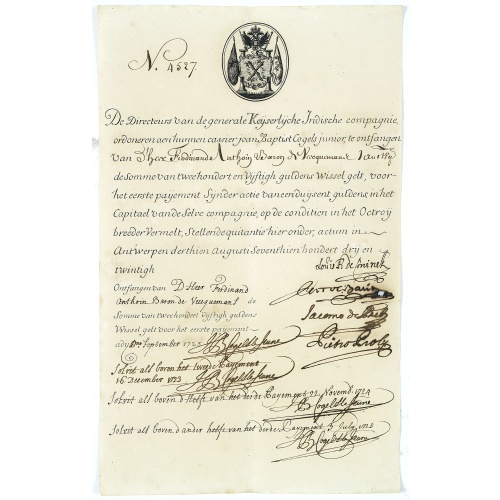 N. 4527
De Directeurs van de generale Keyserlycke Indische compagnie,
ordoneren aen hunnen casier jean Baptist Cogels junior, te ontfangen
van D'heer Ferdinande Anthoin
de Somme van twee hondert en Vijftigh guldens Wissel gelt, voor-
het eerste payement Synder actie van een duysent guldens, in het
Capitael van de Selve compagnie, op de conditien in het Octroy
breeder Vermelt, Stellende quitantie hier onder, actum in
Antwerpen derthien Augusti Seventhien hondert dry en
twintigh
Ontfangen van D Heer Ferdinand
Anthoin Baron de Vecquemans de
Somme van twee hondert Vijftigh guldens
Wissel gelt voor het eerste payement
September 1723 JB Cogels le Jeune
Solvit als boven het tweede Payement
16 December 1723 JB Cogels le Jeune
Solvit als boven d'helft van het derde Payement 22 Novemb. 1724
JB Cogels le Jeune
Solvit als boven d'ander helft van het derde Payement 3 July 1725
JB Cogels le Jeune